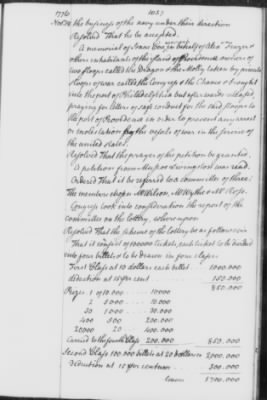 1776 1037
Nov. 18 the business of the navy under their direction
Resolved That he be accepted.
A memorial of Isaac in behalf of Alex Frazer &
other inhabitants of the island of Providence owners of
two sloops called the Dragon & the Molly taken by private
sloops of war called the Congress & the Chance & brought
into the port of Philadelphia but afterwards released,
praying for letters of safe conduct for the said sloops to
the port of Providence in order to prevent any arrest
or molestation by the vessels of war in the service of
the united states.
Resolved that the prayer of the petition be granted.
A petition from Major Livingston was read.
Ordered That it be referred to a committee of three.
The members chosen Mr Wilson, Mr Wythe & Mr Ross.
Congress took into consideration the report of the
committee on the Lottery, whereupon
Resolved That the scheme of the Lottery be as follows viz
That it consist of 100000 tickets, each ticket to be divided
into four billets & to be drawn in four classes.
First Class at 10 dollars each billet 1000.000
deduction at 15 per cent 150.000
850.000
Prizes 1 of 10.000 10.000
2 5000 10.000
30 1000 30.000
400 500 200.000
20000 20 400.000
Carried to the fourth Class 200.000 850.000
Second Class 100.000 billets at 20 dollars is 2000.000
Deduction at 15 per centum 300.000
leaves 1700.000